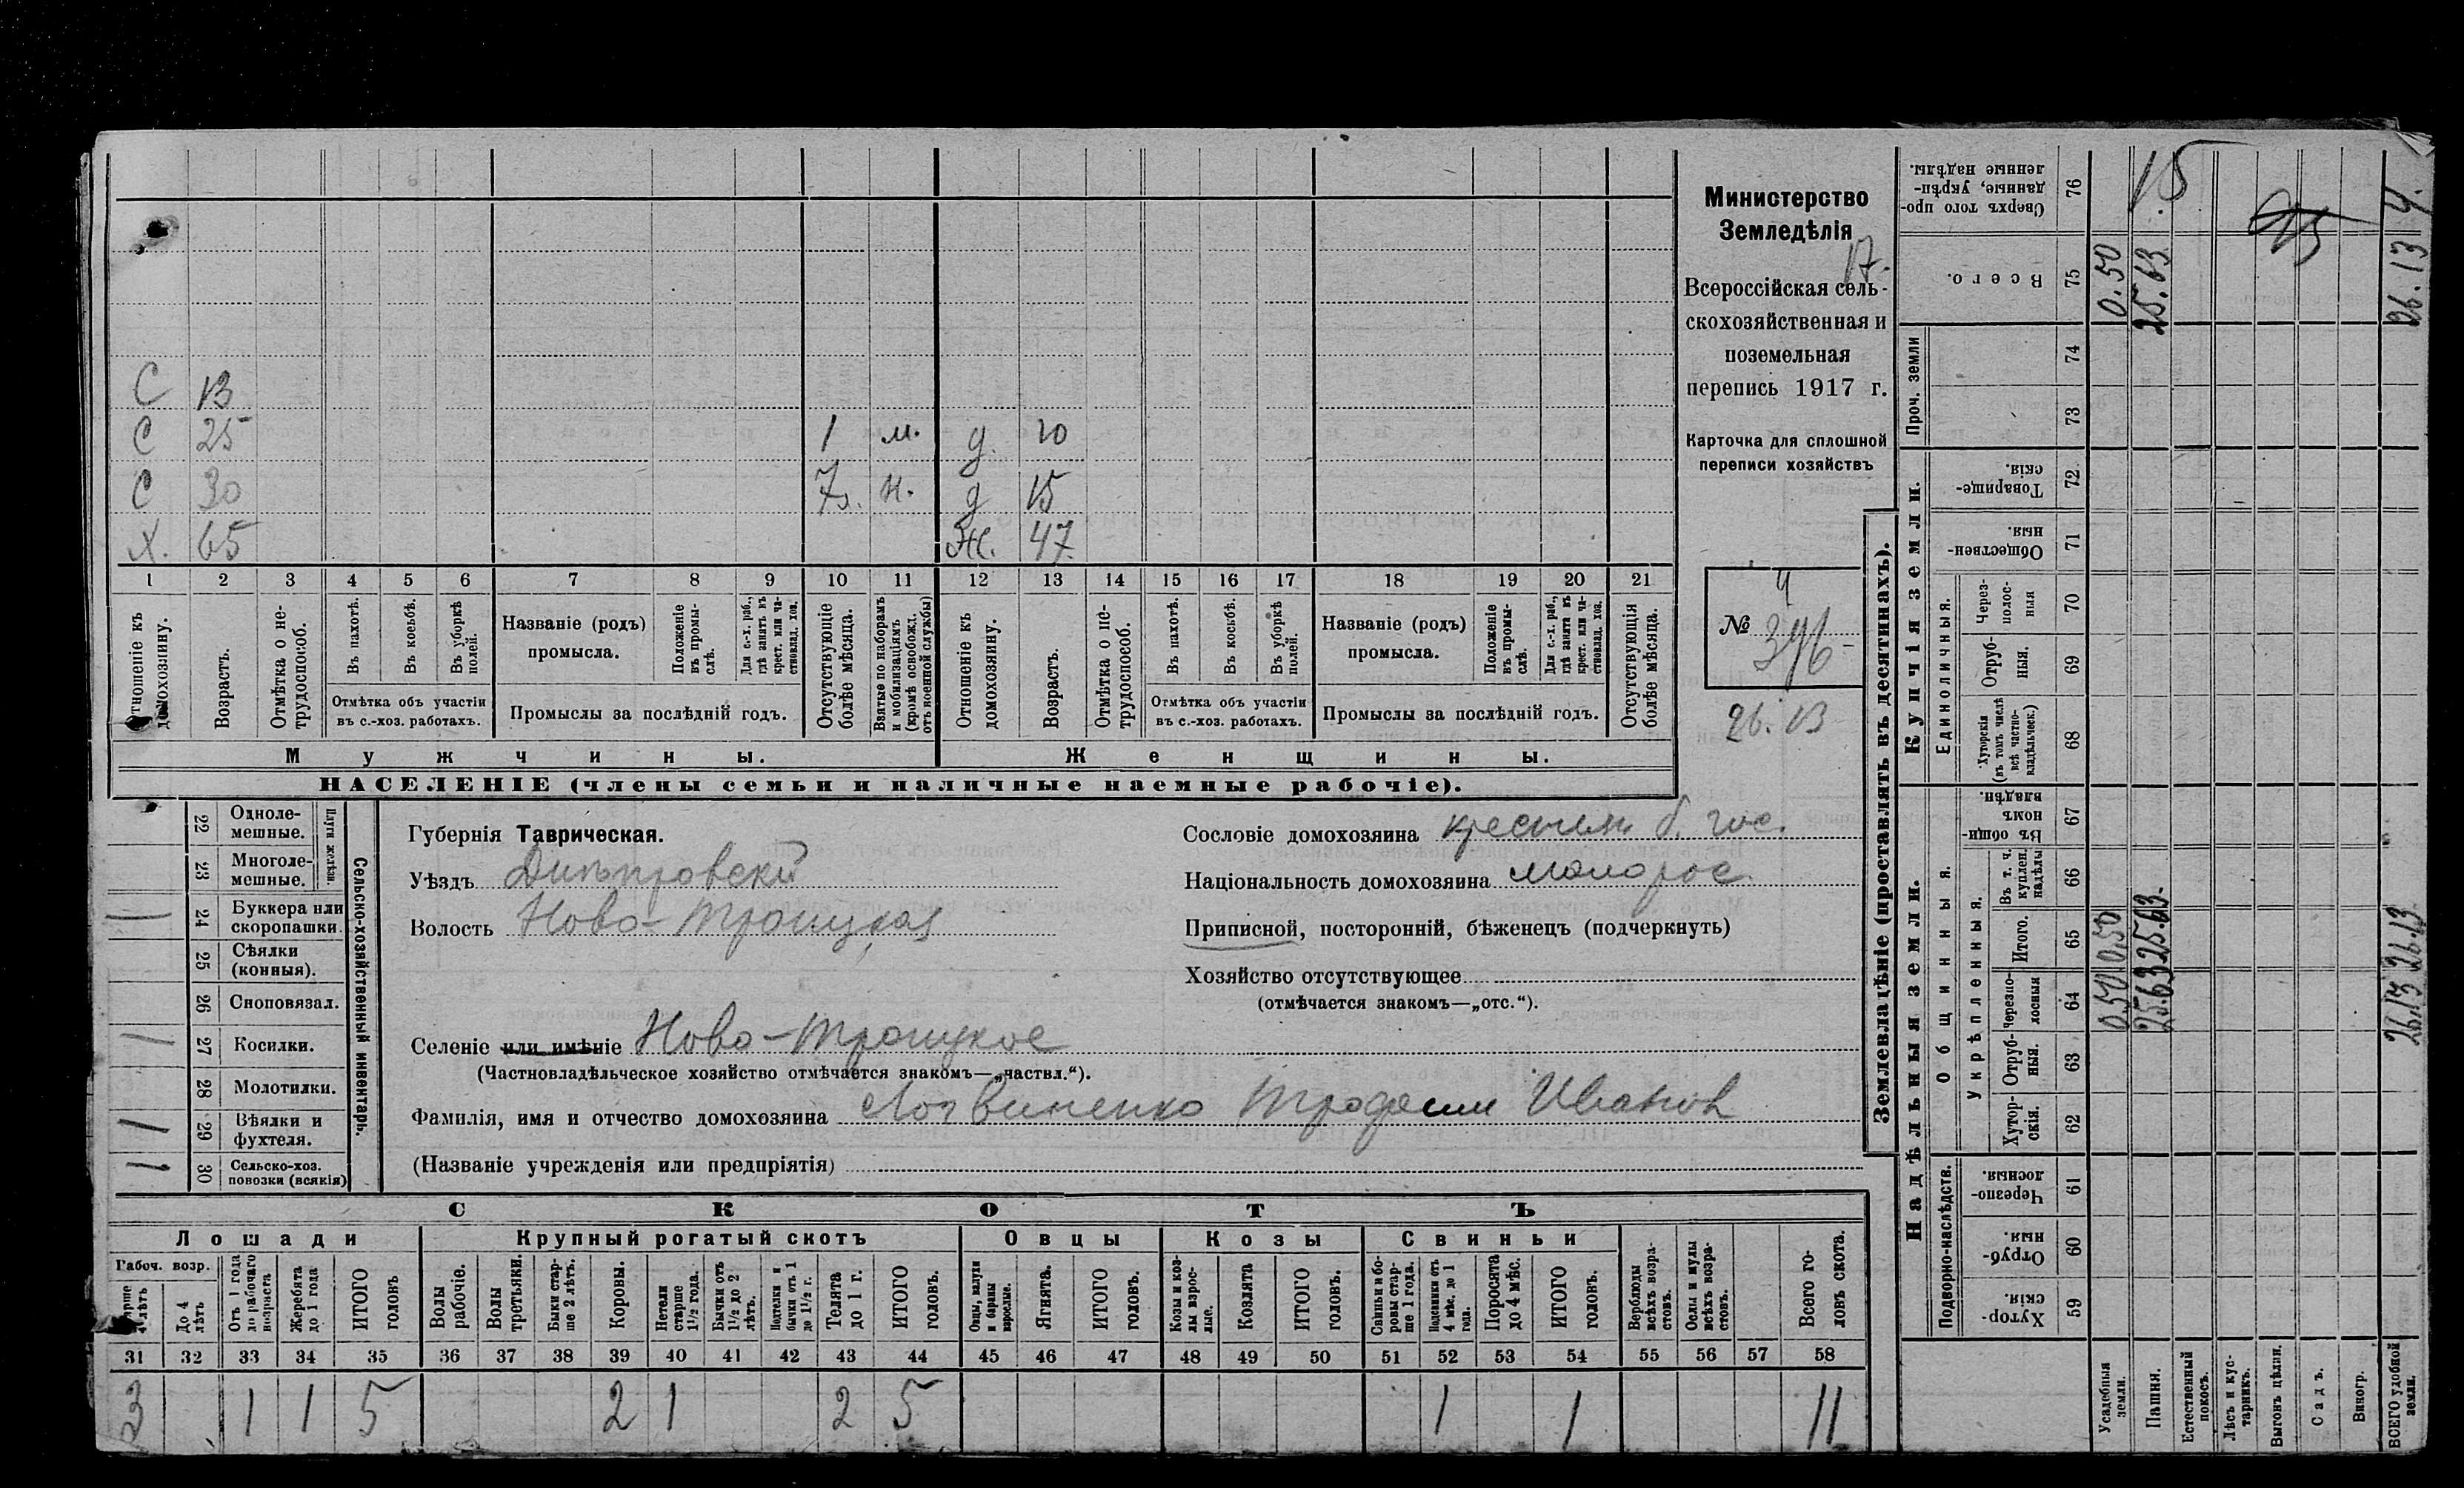 Министерство
Земледѣлія
17.
Всероссійская сель-
скохозяйственная и
поземельная
перепись 1917 г.
Карточка для сплошной
переписи хозяйствъ
№ 396
26.13
С 13
С 25 1 м. д. 10
С 30 7л. н. д 15
Х. 65 Ж. 47
1 2 3 4 5 6 7 8 9 10 11 12 13 14 15 16 17 18 19 20 21
Отношеніе къ домохозяину.
Возрастъ.
Отмѣтка о не-трудоспособ.
Въ пахотѣ.
Въ косьбѣ.
Въ уборкѣ полей.
Отмѣтка объ участіи въ с.-хоз. работахъ.
Названіе (родъ) промысла.
Положеніе въ промы-слѣ.
Для с.-х. раб., гдѣ занятъ въ крест. или ча-ствовлад. хоз.
Промыслы за послѣдній годъ.
Отсутствующіе болѣе мѣсяца.
Взятые по наборамъ и мобилизаціямъ (кромѣ освобожд. отъ военной службы)
Отношеніе къ домохозяину.
Возрастъ.
Отмѣтка о не-трудоспособ.
Въ пахотѣ.
Въ косьбѣ.
Въ уборкѣ полей.
Отмѣтка объ участіи въ с.-хоз. работахъ.
Названіе (родъ) промысла.
Положеніе въ промы-слѣ.
Для с.-х. раб., гдѣ занята въ крест. или ча-ствовлад. хоз.
Промыслы за послѣдній годъ.
Отсутствующія болѣе мѣсяца.
Мужчины. Женщины.
НАСЕЛЕНІЕ (члены семьи и наличные наемные рабочіе).
Сельско-хозяйственный инвентарь.
Плуги желѣзн.
22 Одноле-мешные.
23 Многоле-мешные.
24 Буккера или скоропашки.
25 Сѣялки (конныя).
26 Сноповязал.
27 Косилки.
28 Молотилки.
29 Вѣялки и фухтеля.
30 Сельско-хоз. повозки (всякія)
Губернія Таврическая.
Уѣздъ Днѣпровскій
Волость Ново-Троицкая
Селеніе или имѣніе Ново-Троицкое
(Частновладѣльческое хозяйство отмѣчается знакомъ—„частвл.“).
Фамилія, имя и отчество домохозяина Логвиненко Иванов
(Названіе учрежденія или предпріятія)
Сословіе домохозяина крестьян. б. гос.
Національность домохозяина малорос.
Приписной, посторонній, бѣженецъ (подчеркнуть)
Хозяйство отсутствующее
(отмѣчается знакомъ—„отс.“).
СКОТЪ
Лошади Крупный рогатый скотъ Овцы Козы Свиньи
Рабоч. возр.
Старше 4 лѣтъ
До 4 лѣтъ
Отъ 1 года до рабочаго возраста
Жеребята до 1 года
ИТОГО головъ
Волы рабочіе.
Волы третьяки.
Быки стар-ше 2 лѣтъ.
Коровы.
Нетели старше 1½ года.
Бычки отъ 1½ до 2 лѣтъ.
Подтелки и бычки отъ 1 до 1½ г.
Телята до 1 г.
ИТОГО головъ.
Овцы, валухи и бараны взрослые.
Ягнята.
ИТОГО головъ.
Козы и коз-лы взрос-лые.
Козлята
ИТОГО головъ.
Свиньи и бо-ровы стар-ше 1 года.
Подсвинки отъ 4 мѣс. до 1 года.
Поросята до 4 мѣс.
ИТОГО головъ.
Верблюды всѣхъ возра-стовъ.
Ослы и мулы всѣхъ возра-стовъ.
Всего го-ловъ скота.
31 32 33 34 35 36 37 38 39 40 41 42 43 44 45 46 47 48 49 50 51 52 53 54 55 56 57 58
3 1 1 5 2 1 2 5 1 1 11
Землевладѣніе (проставлять въ десятинахъ).
Надѣльныя земли. Купчія земли. Проч. земли
Подворно-наслѣдств.
Общинныя.
Укрѣпленныя.
Единоличныя.
Хутор-скія. 59
Отруб-ныя 60
Черезпо-лосныя. 61
Хутор-скія. 62
Отруб-ныя. 63
Черезпо-лосныя 64
Итого. 65
Въ т. ч. куплен. надѣлы 66
Въ общин-номъ владѣн. 67
Хуторскія (въ томъ числѣ всѣ частно-владѣльческ.) 68
Отруб-ныя. 69
Через-полос-ныя 70
Обществен-ныя. 71
Товарище-скія. 72
73
74
Всего. 75
Сверхъ того про-данные, укрѣп-ленные надѣлы. 76
Усадебныя земли. 0.50 0.50 0.50
Пашня. 25.63 25.63 25.63 15
Естественный покосъ.
Лѣсъ и кус-тарникъ.
Выгонъ цѣлин.
Садъ.
Виногр.
ВСЕГО удобной земли. 26.13 26.13 26.13 4.